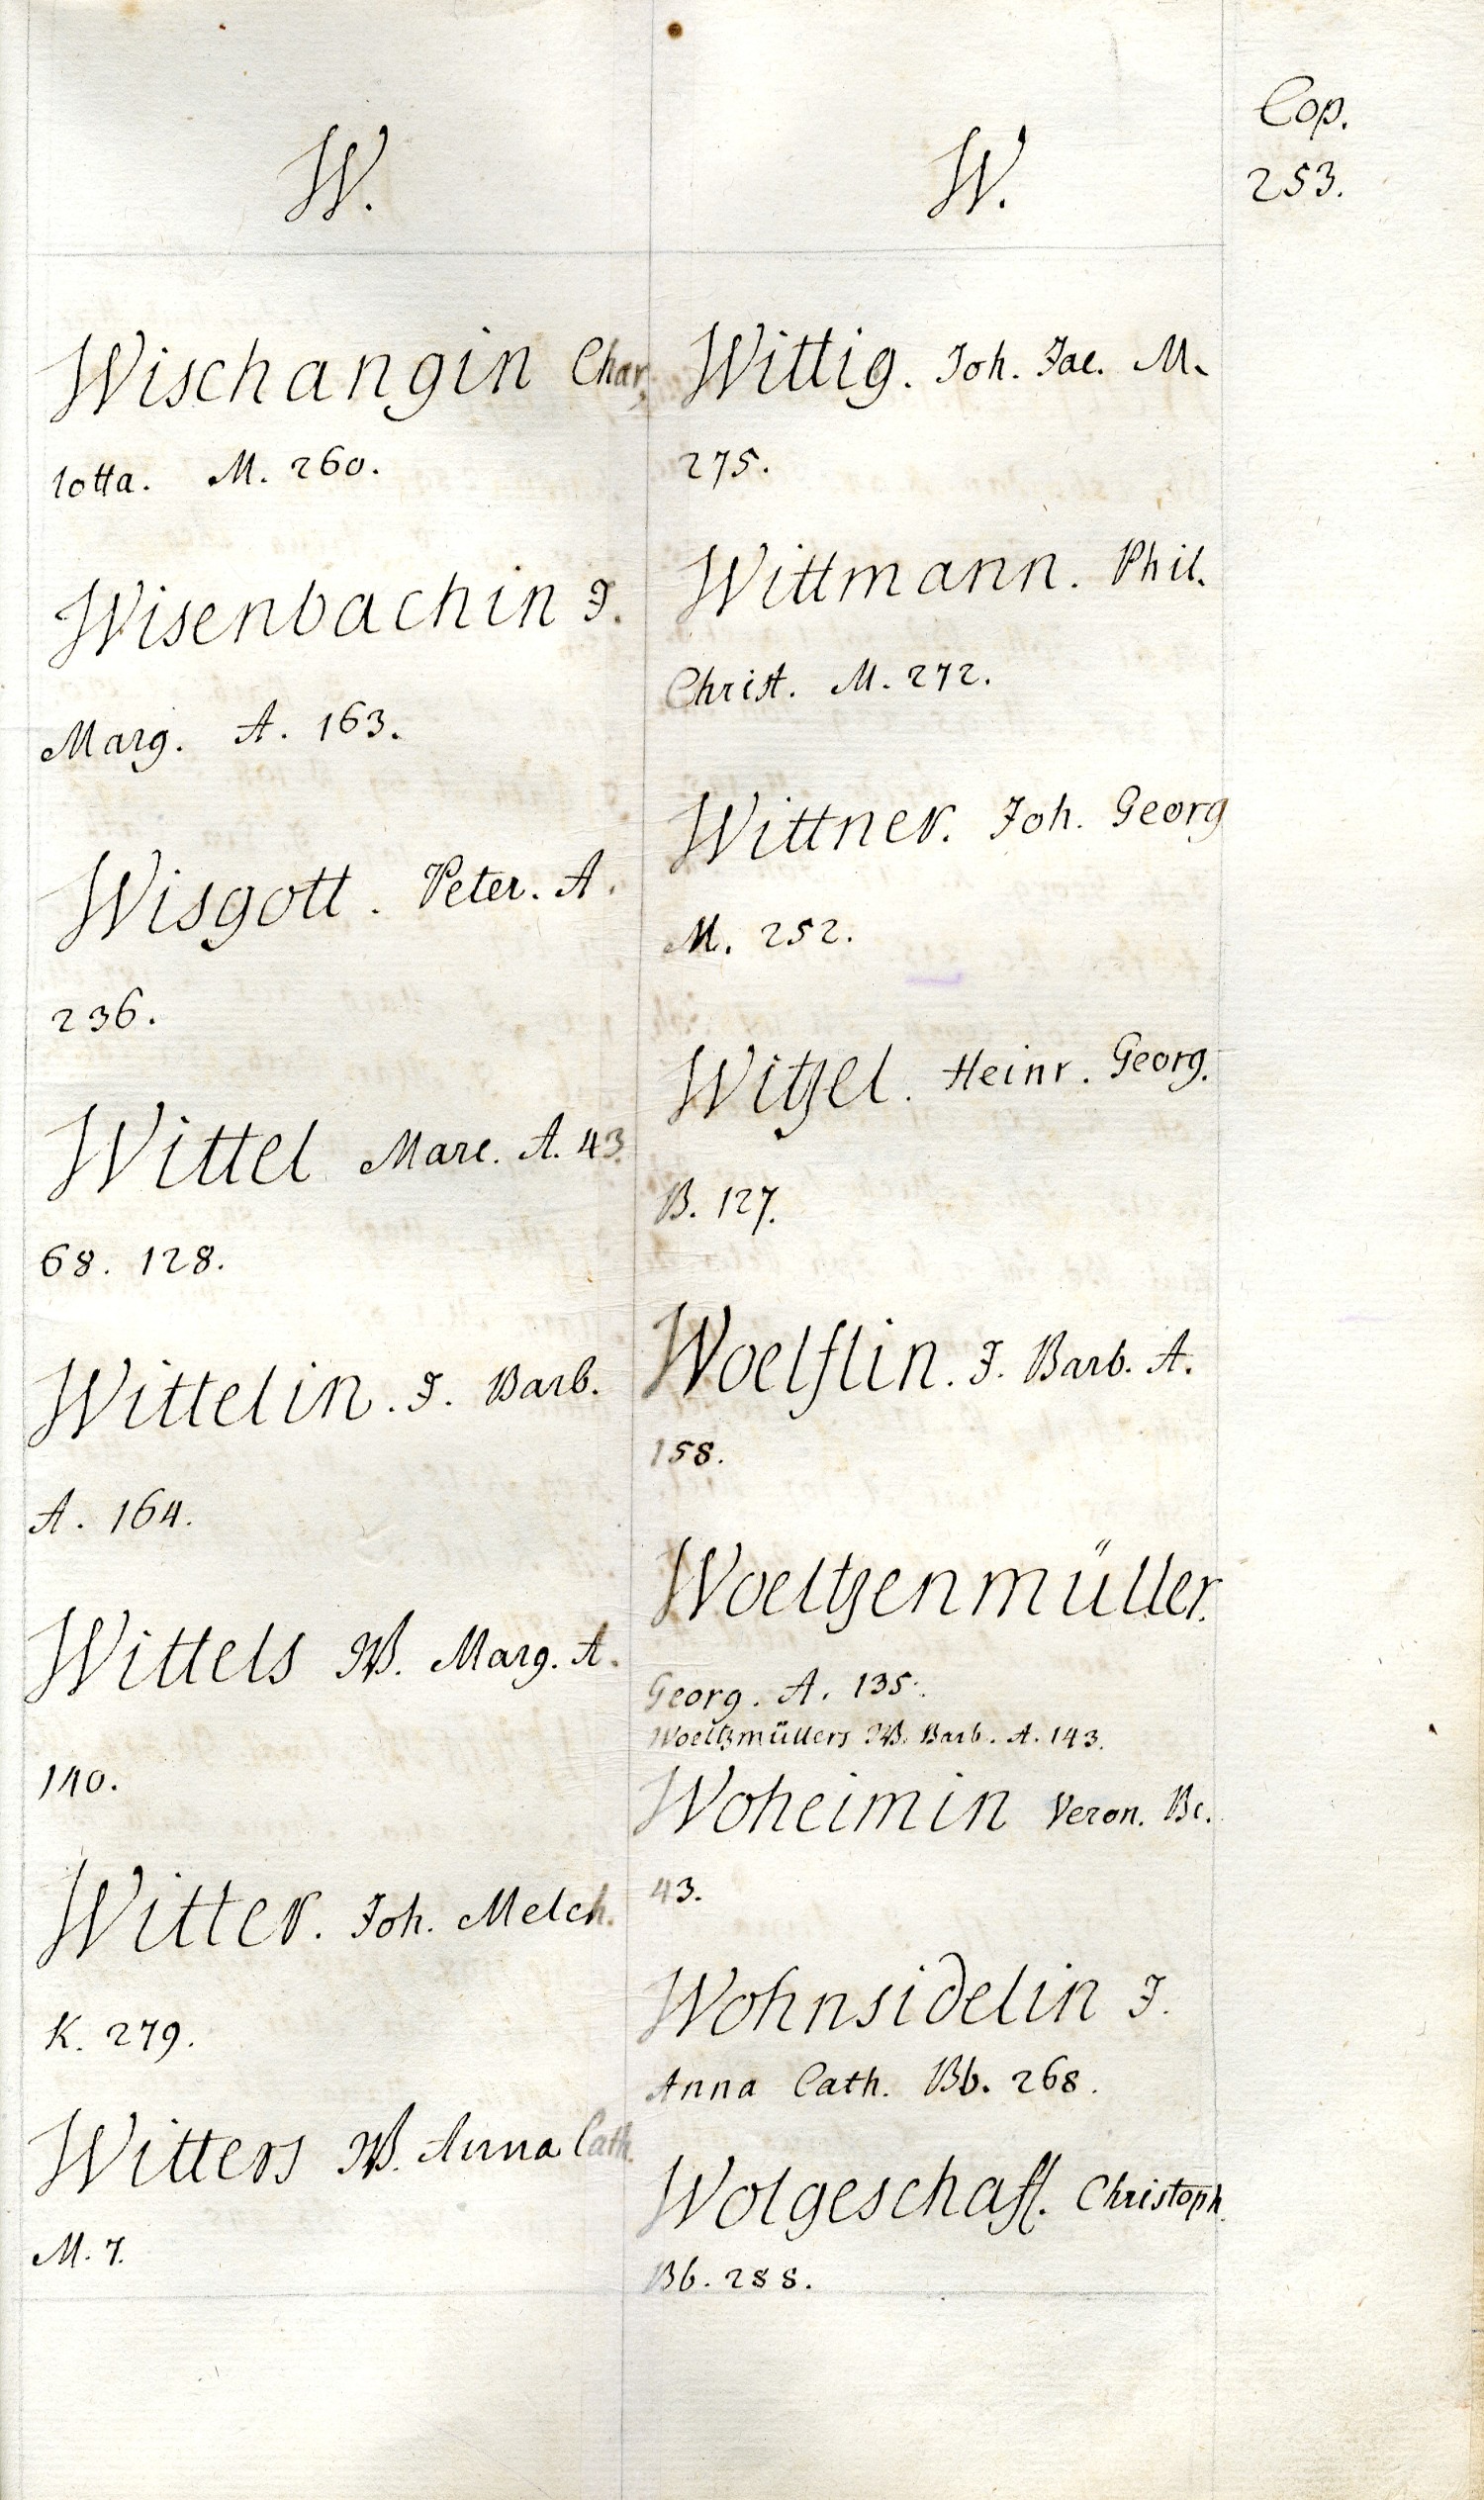 Cop.
253.
W.
Wischangin Char,
lotta. M. 260.
Wisenbachin J.
Marg. A. 163.
Wisgott. Peter. A.
236.
Wittel Marc. A. 43.
68. 128.
Wittelin. J. Barb.
A. 164.
Wittels W. Marg. A.
140.
Witter. Joh. Melch.
K. 279.
Witters W. Anna Cath.
M. 7.
W.
Wittig. Joh. Jac. M.
275.
Wittmann. Phil.
Christ. M. 272.
Wittner. Joh. Georg
M. 252.
Witzel. Heinr. Georg.
B. 127.
Woelflin. J. Barb. A.
158.
Woeltzenmüller.
Georg. A. 135.
Woeltzmüllers W. Barb. A. 143.
Woheimin Veron. Bc.
43.
Wohnsidelin J.
Anna Cath. Bb. 268.
Wolgeschaft. Christoph.
Bb. 288.